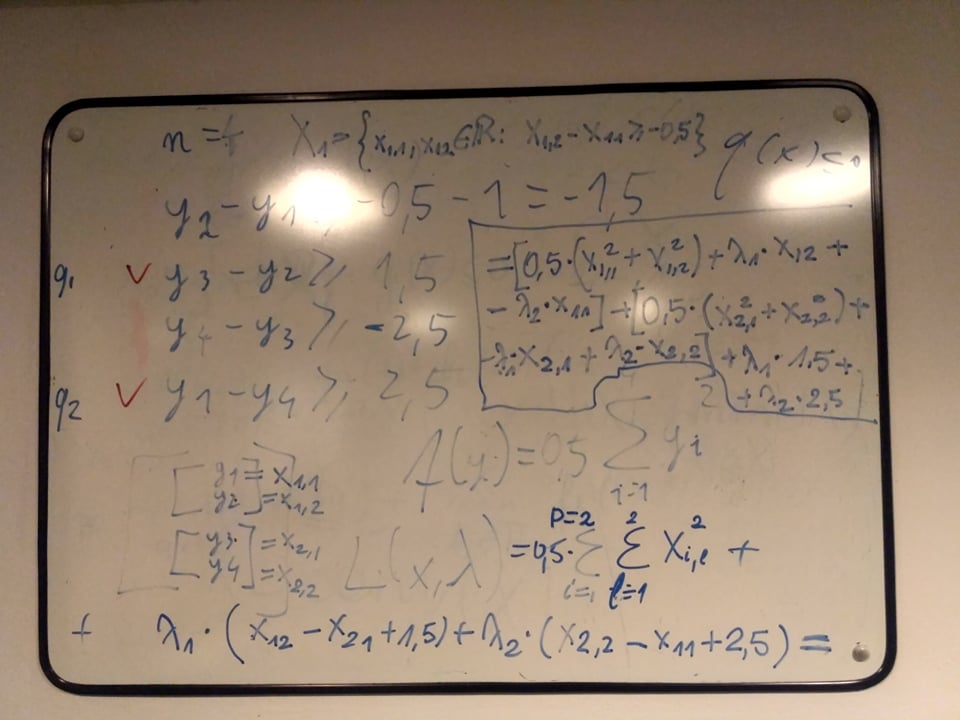 n = 4 X₁ = {x₁,₁, x₁₂ ∈ ℝ: x₁,₂ - x₁₁ ⩾ -0,5} g(x) ≤ 0
y₂ - y₁ ⩾ -0,5 - 1 = -1,5
g₁ ✓ y₃ - y₂ ⩾ 1,5
y₄ - y₃ ⩾ -2,5
g₂ ✓ y₁ - y₄ ⩾ 2,5
= [0,5·(x₁,₁² + x₁,₂²) + λ₁·x₁₂ +
- λ₂·x₁₁] + [0,5·(x₂,₁² + x₂,₂²) +
-λ₁·x₂,₁ + λ₂·x₂,₂] + λ₁·1,5 +
+ λ₂·2,5
f(y) = 0,5 Σ yᵢ²
i=1
[y₁ = x₁,₁
y₂] = x₁,₂
[y₃ = x₂,₁
y₄] = x₂,₂
L(x,λ) = 0,5· Σ_{i=1}^{P=2} Σ_{l=1}^{2} x_{i,l}² +
+ λ₁·(x₁₂ - x₂₁ + 1,5) + λ₂·(x₂,₂ - x₁₁ + 2,5) =